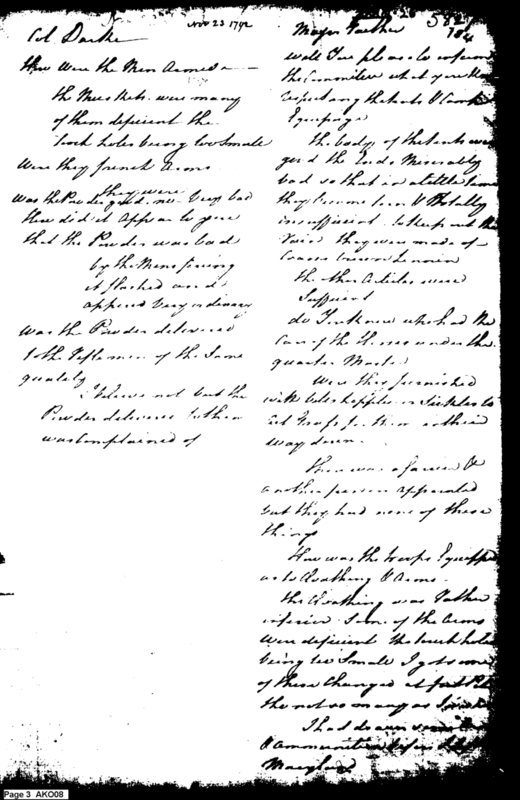 Nov 23 1792
Col Darke
How were the Men Armed
the Muskets were many
of them deficient the
Touch holes being too Small
Were they french Arms
they were
was the Powder good no Very bad
How did it Appear to you
that the Powder was bad
by the Mens firing
it flashed and
appeared Very ordinary
Was the Powder delivered
to the Rifle men of the Same
quality
I believe not but the
Powder delivered to them
was Complained of
582
Major
will You please to inform
the Committee what you
respecting the tents & Camp
Equipage
the bodys of the tents were
good the Ends Miserably
bad so that in a little time
they became & totally
insufficient to keep out the
Rain they were made of
Coarse brown Linnen
the other Articles were
Sufficient
do You know who had the
Care of the Horses under the
quarter Master
Were they furnished
with bells hopples or Sickles to
Cut Grass for them on their
way down
There was a farrier &
another person appointed
but they had none of these
things
How was the troops Equipped
as to Cloathing & Arms
the Cloathing was Rather
inferior Some of the Arms
were deficient the touch holes
being too Small I got some
of these Changed at fort
tho not so many as I
I had drawn
& Ammunition before I left
Maryland
Page 3 AKO08